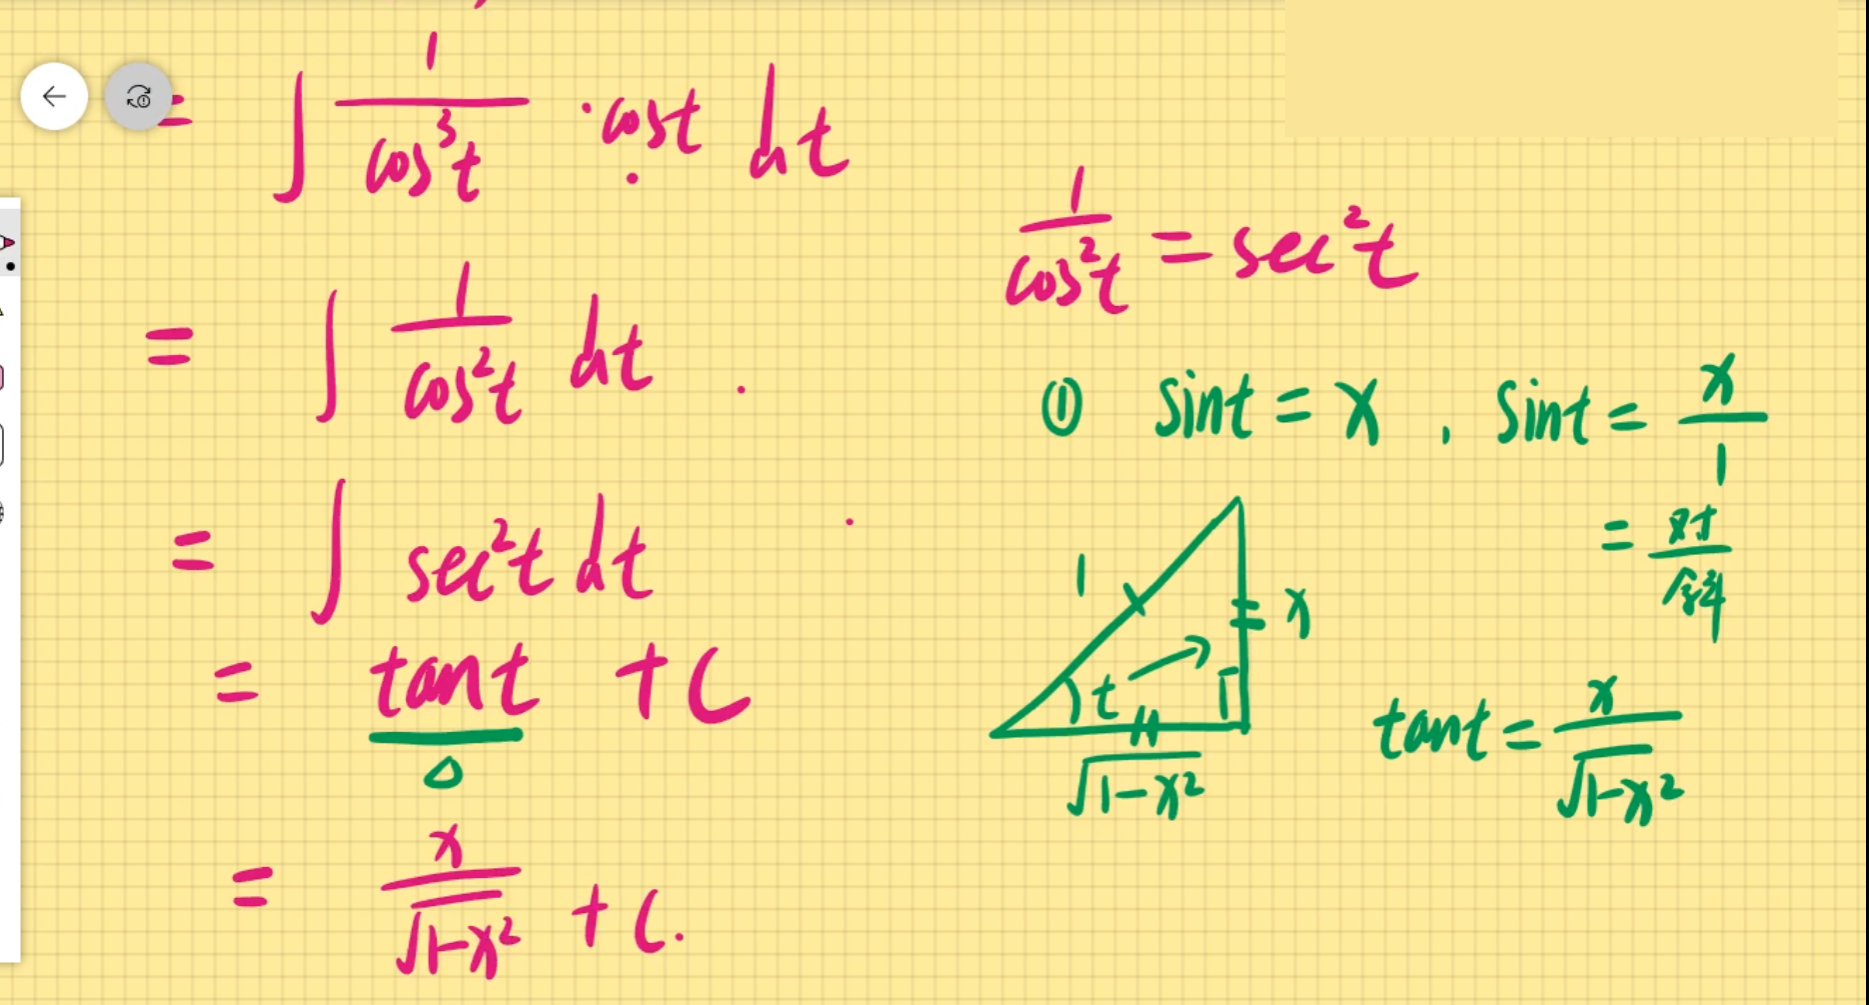 = ∫ 1/cos³t · cost dt
= ∫ 1/cos²t dt
= ∫ sec²t dt
= tant + C
= x/√(1-x²) + C.
1/cos²t = sec²t
① sint = x , sint = x/1
= 对/斜
1 x
t
√(1-x²)
tant = x/√(1-x²)